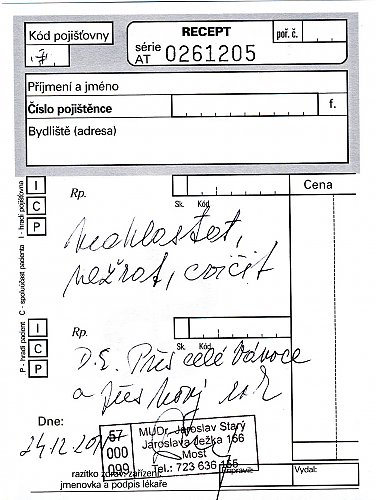 Kód pojišťovny
RECEPT
série
AT 0261205
poř. č.
Příjmení a jméno
Číslo pojištěnce
f.
Bydliště (adresa)
I
C
P
I - hradí pojišťovna
C - spoluúčast pacienta
P - hradí pacient
Rp.
Sk. Kód
Cena
nechlastat,
nežrat, cvičit
I
C
P
Rp.
Sk. Kód
D.S. Přes celé Vánoce
a přes Nový rok
Dne:
24.12.
57
000
099
MUDr. Jaroslav Starý
Jaroslava Ježka 166
Most
Tel.: 723 636 155
razítko zdrav. zařízení,
jmenovka a podpis lékaře
Připravil:
Vydal: